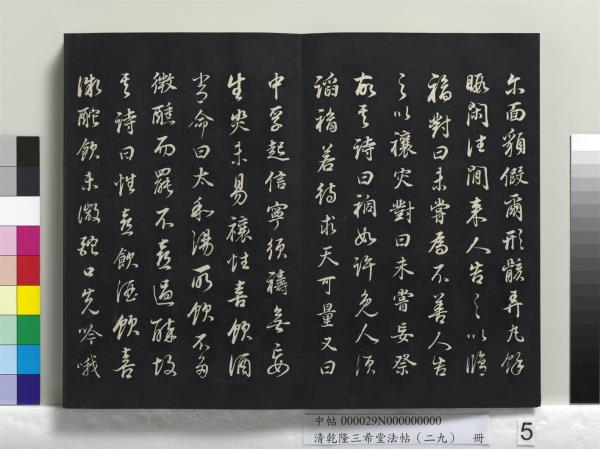 尔面貌假爾形骸弄丸餘
暇閑往閒来人告之以脩
福對曰未嘗為不善人告
之以禳灾對曰未嘗妄祭
故其詩曰禍如許免人須
諂福若待求天可量又曰
中孚起信寧須禱無妄
生灾未易禳性喜飲酒
嘗命曰太和湯所飲不多
微醺而罷不喜過醉故
其詩曰性喜飲酒飲喜
微酡飲未微酡口先吟哦
中帖 000029N000000000
清乾隆三希堂法帖（二九） 冊
5